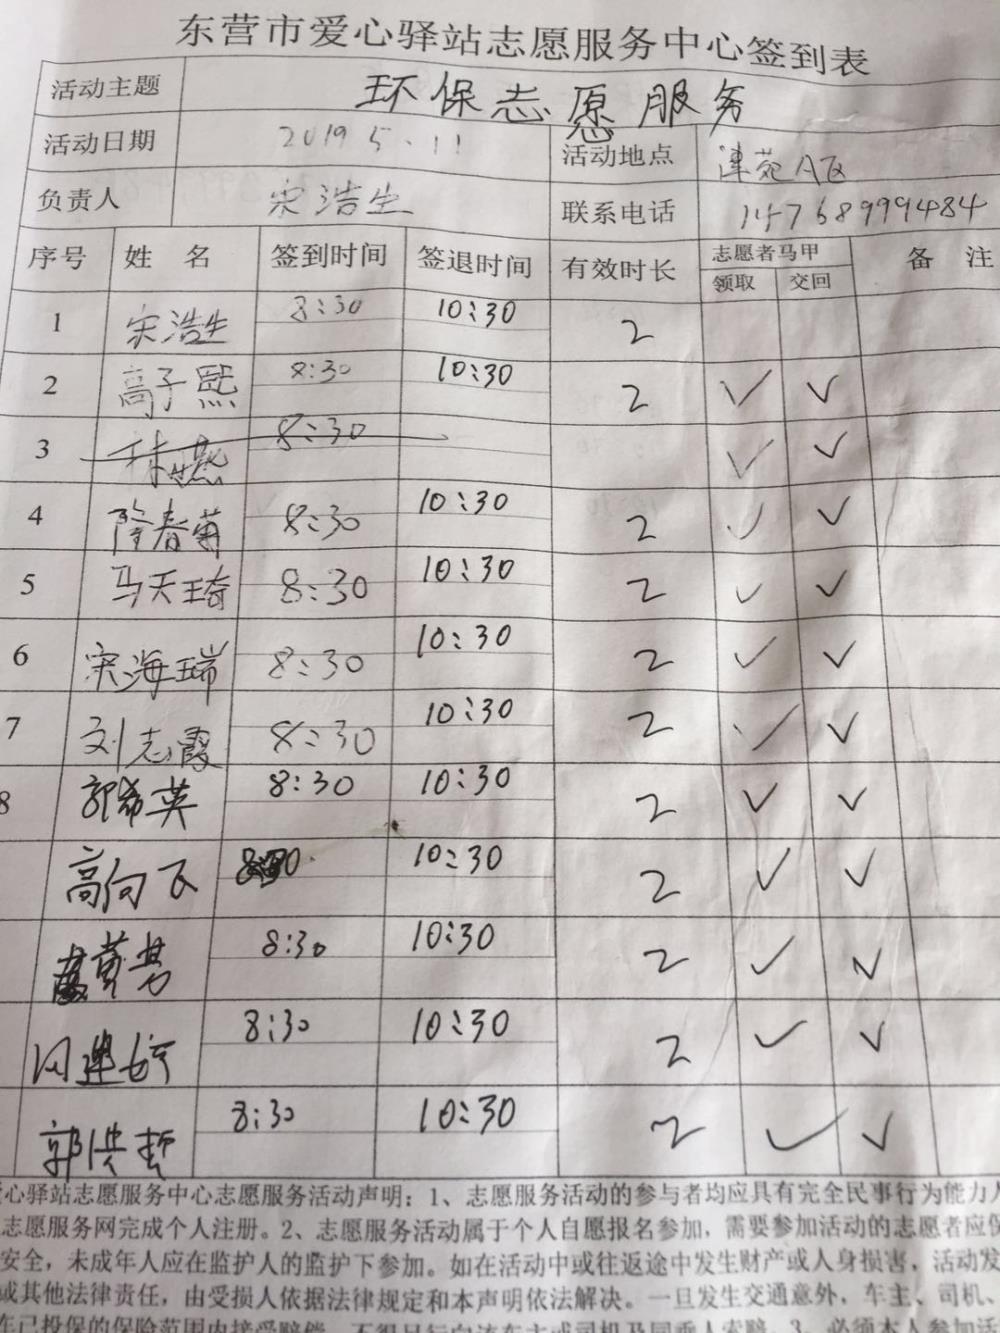 东营市爱心驿站志愿服务中心签到表
活动主题 环保志愿服务
活动日期 2019 5.11 活动地点 津苑A区
负责人 宋浩生 联系电话 14768999484
序号 姓 名 签到时间 签退时间 有效时长 志愿者马甲 备 注
领取 交回
1 宋浩生 8:30 10:30 2
2 高子熙 8:30 10:30 2 ✓ ✓
3 林燃 8:30 ✓ ✓
4 隆春菊 8:30 10:30 2 ✓ ✓
5 马天琦 8:30 10:30 2 ✓ ✓
6 宋海瑞 8:30 10:30 2 ✓ ✓
7 刘志霞 8:30 10:30 2 ✓ ✓
8 郭希英 8:30 10:30 2 ✓ ✓
高向飞 8:30 10:30 2 ✓ ✓
黄芳 8:30 10:30 2 ✓ ✓
8:30 10:30 2 ✓ ✓
郭洪哲 8:30 10:30 2 ✓ ✓
心驿站志愿服务中心志愿服务活动声明：1、志愿服务活动的参与者均应具有完全民事行为能力人
志愿服务网完成个人注册。2、志愿服务活动属于个人自愿报名参加，需要参加活动的志愿者应保
安全，未成年人应在监护人的监护下参加。如在活动中或往返途中发生财产或人身损害，活动发
或其他法律责任，由受损人依据法律规定和本声明依法解决。一旦发生交通意外，车主、司机、
车已投保的保险范围内接受赔偿，不得另行向该车主或司机及同乘人索赔。3、必须本人参加活